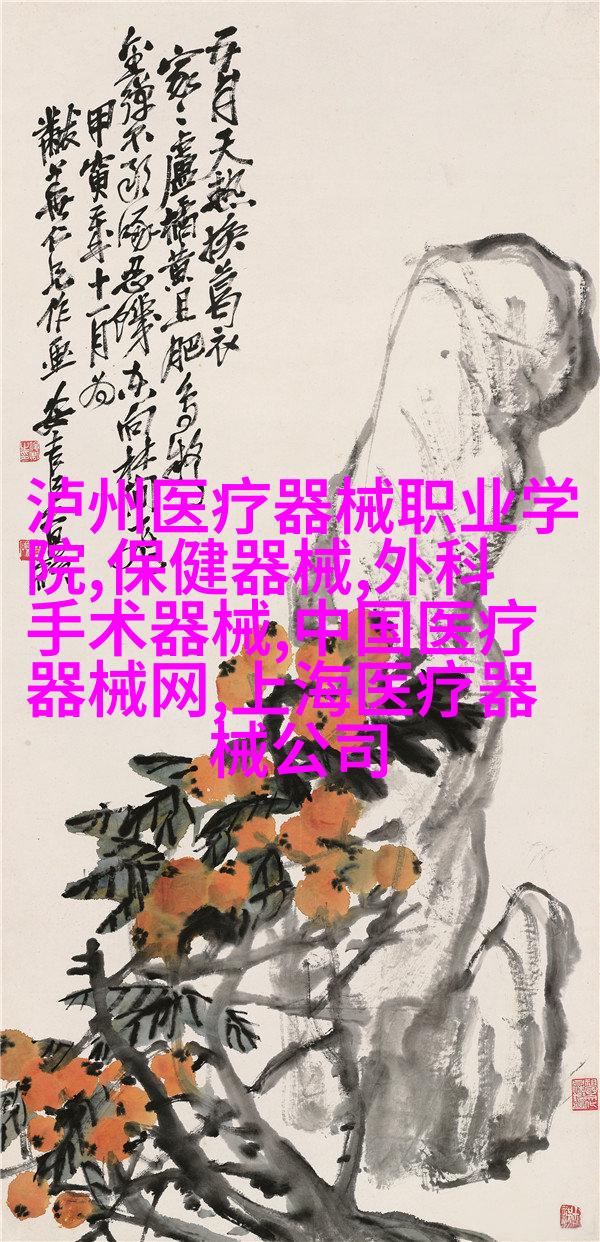 五月天熱換葛衣
家〻盧橘黃且肥鳥
金彈不敢啄忍饑空向林間飛
甲寅年十一月為
仁兄作畫安吉
泸州医疗器械职业学
院,保健器械,外科
手术器械,中国医疗
器械网,上海医疗器
械公司